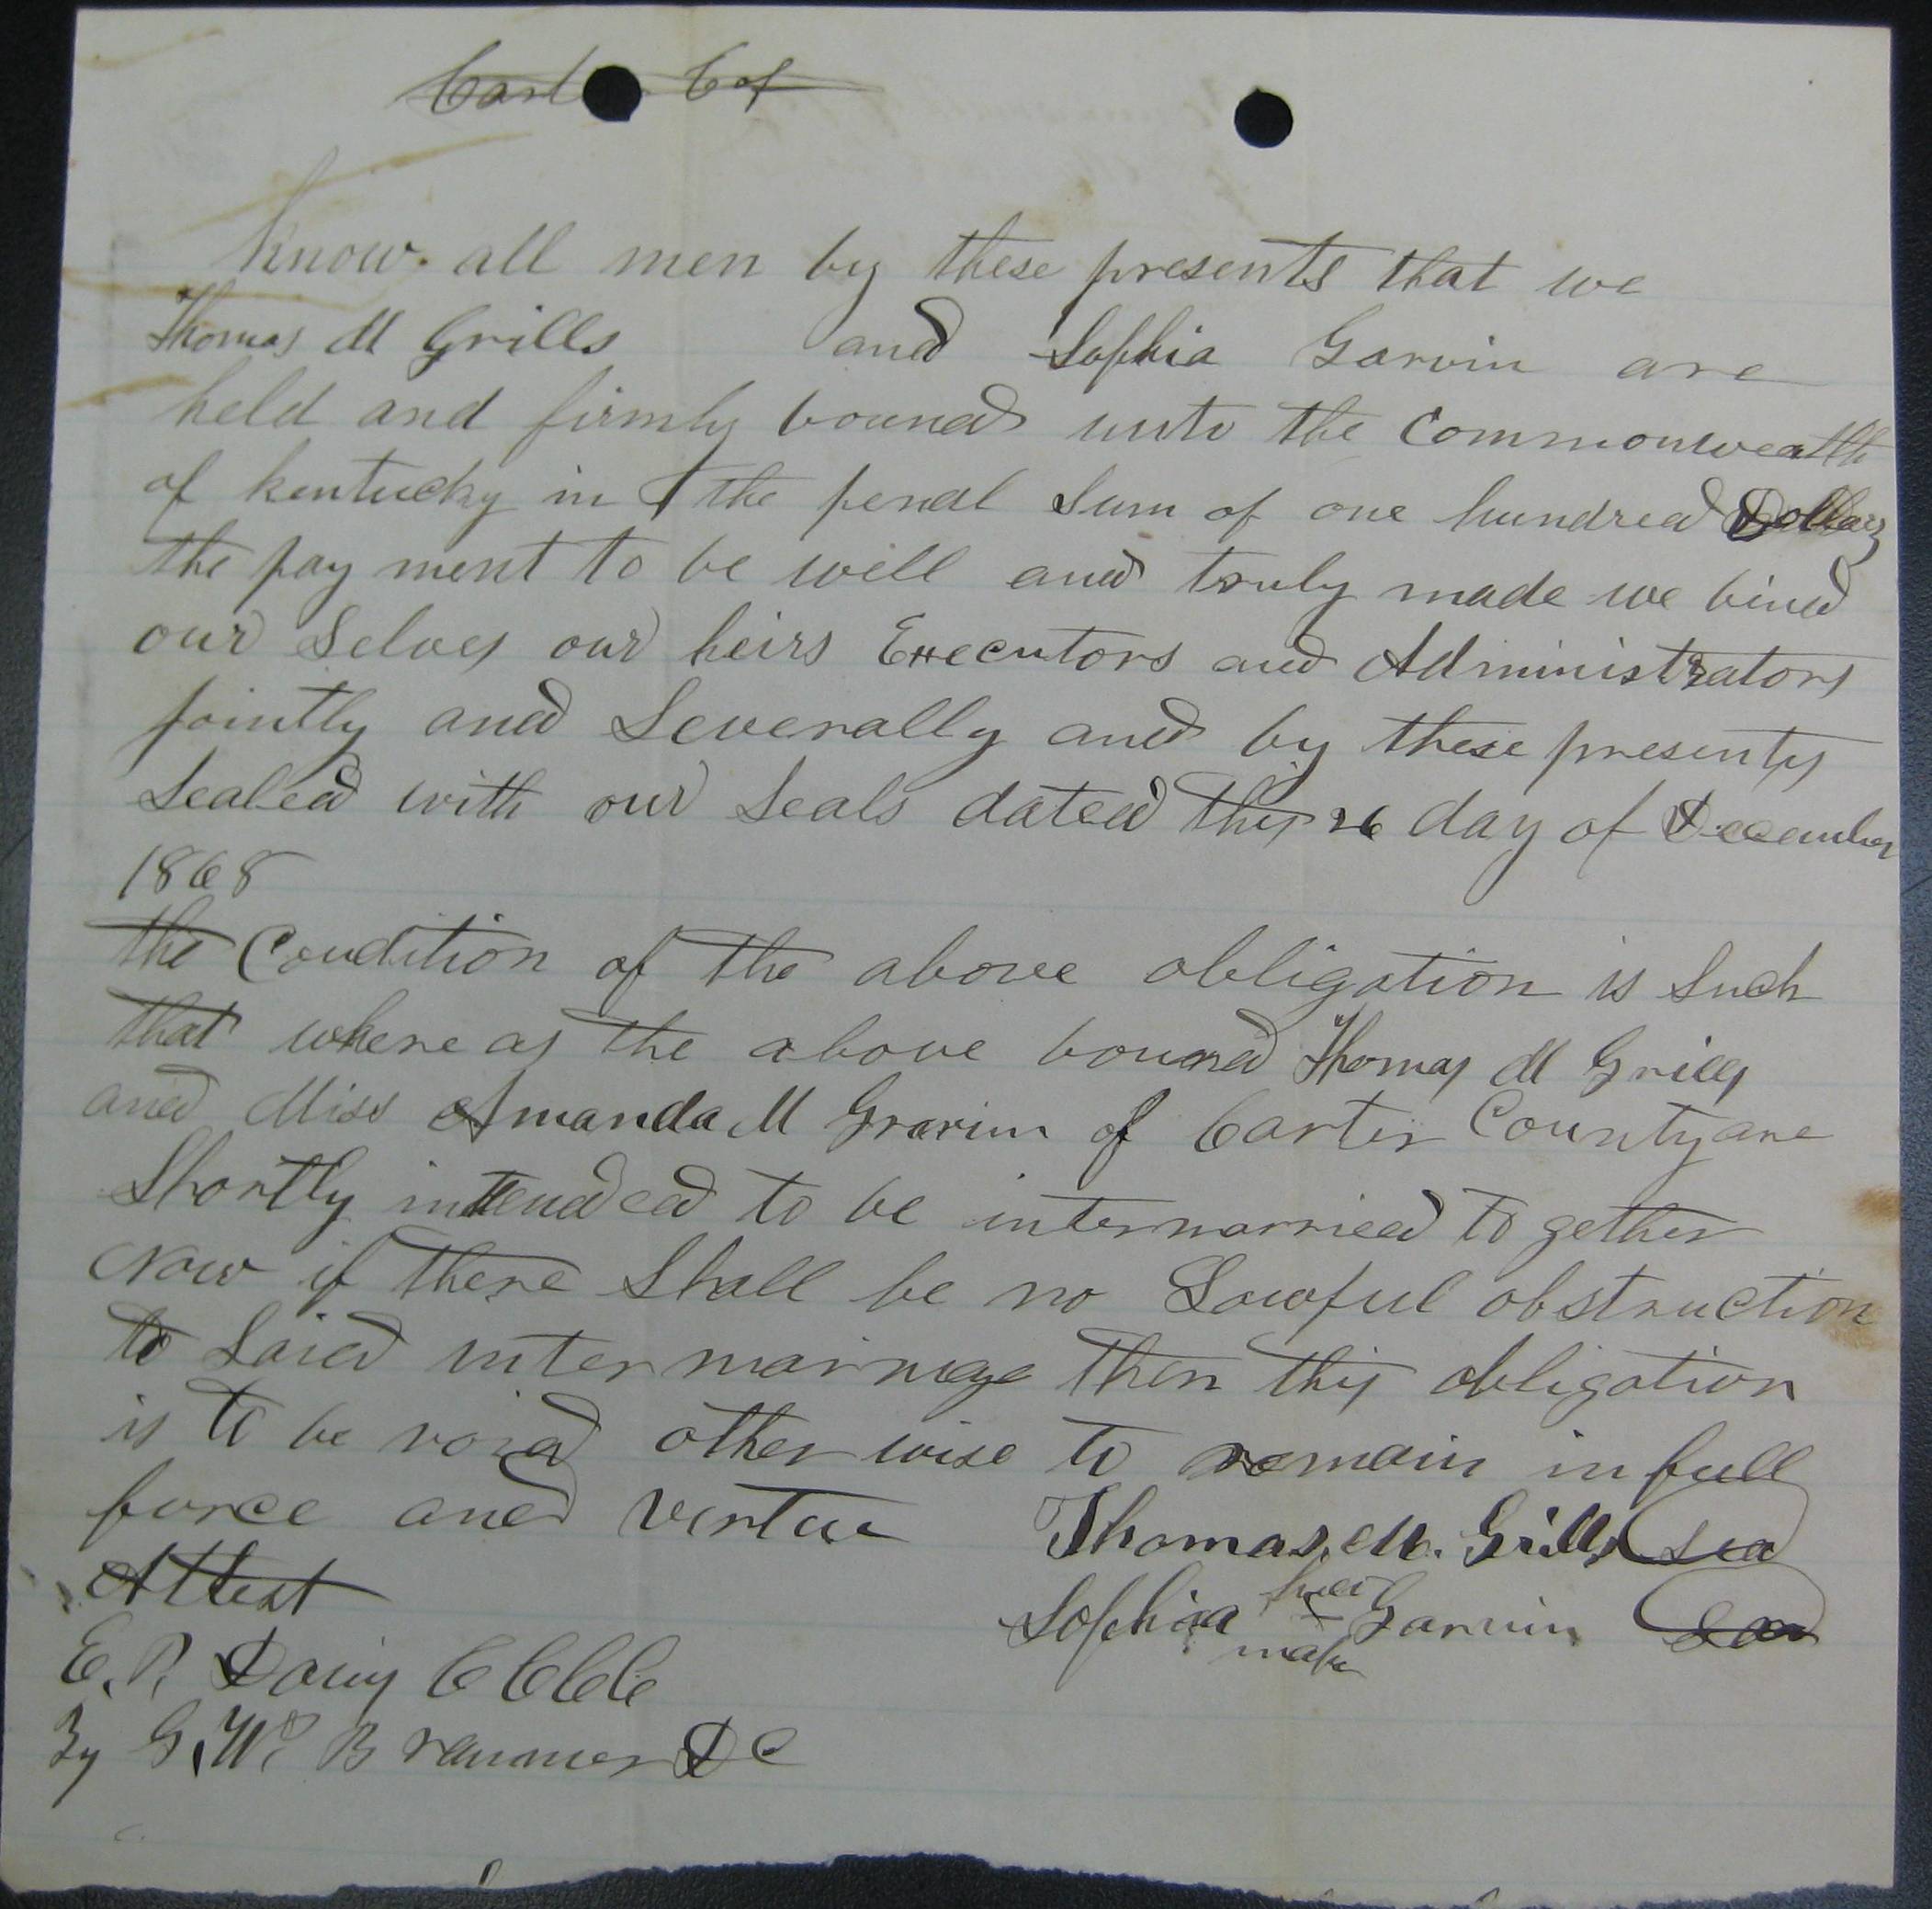 Know all men by these presents that we
Thomas M Grills and Sophia Garvin are
held and firmly bound unto the Commonwealth
of Kentucky in the penal Sum of one hundred Dollars
the pay ment to be well and truly made we bind
our Selves our heirs Executors and Administrators
jointly and Severally and by these presents
Sealed with our Seals dated this 26 day of December
1868
the Condition of the above obligation is Such
that where as the above bound Thomas M Grills
and Miss Amanda M Gravin of Carter County are
Shortly intended to be intermarried to gether
Now if there Shall be no Lawful obstruction
to Said inter marriage then this obligation
is to be void other wise to remain in full
force and Vertue Thomas. M. Grills Sea
Attest
Sophia her x mark Garvin Sea
E. P. Davis C C Clk
By G. W. Brammer D C